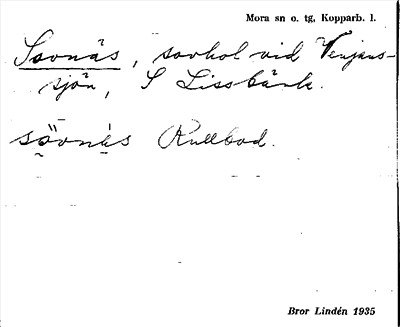 Mora sn o. tg, Kopparb. l.
Sovnäs, sovhol vid Venjans-
sjön, S Lissbänk.
sövnäs Kullbod.
Bror Lindén 1935